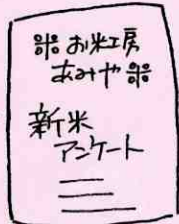 お米工房
あみや
新米
アンケート